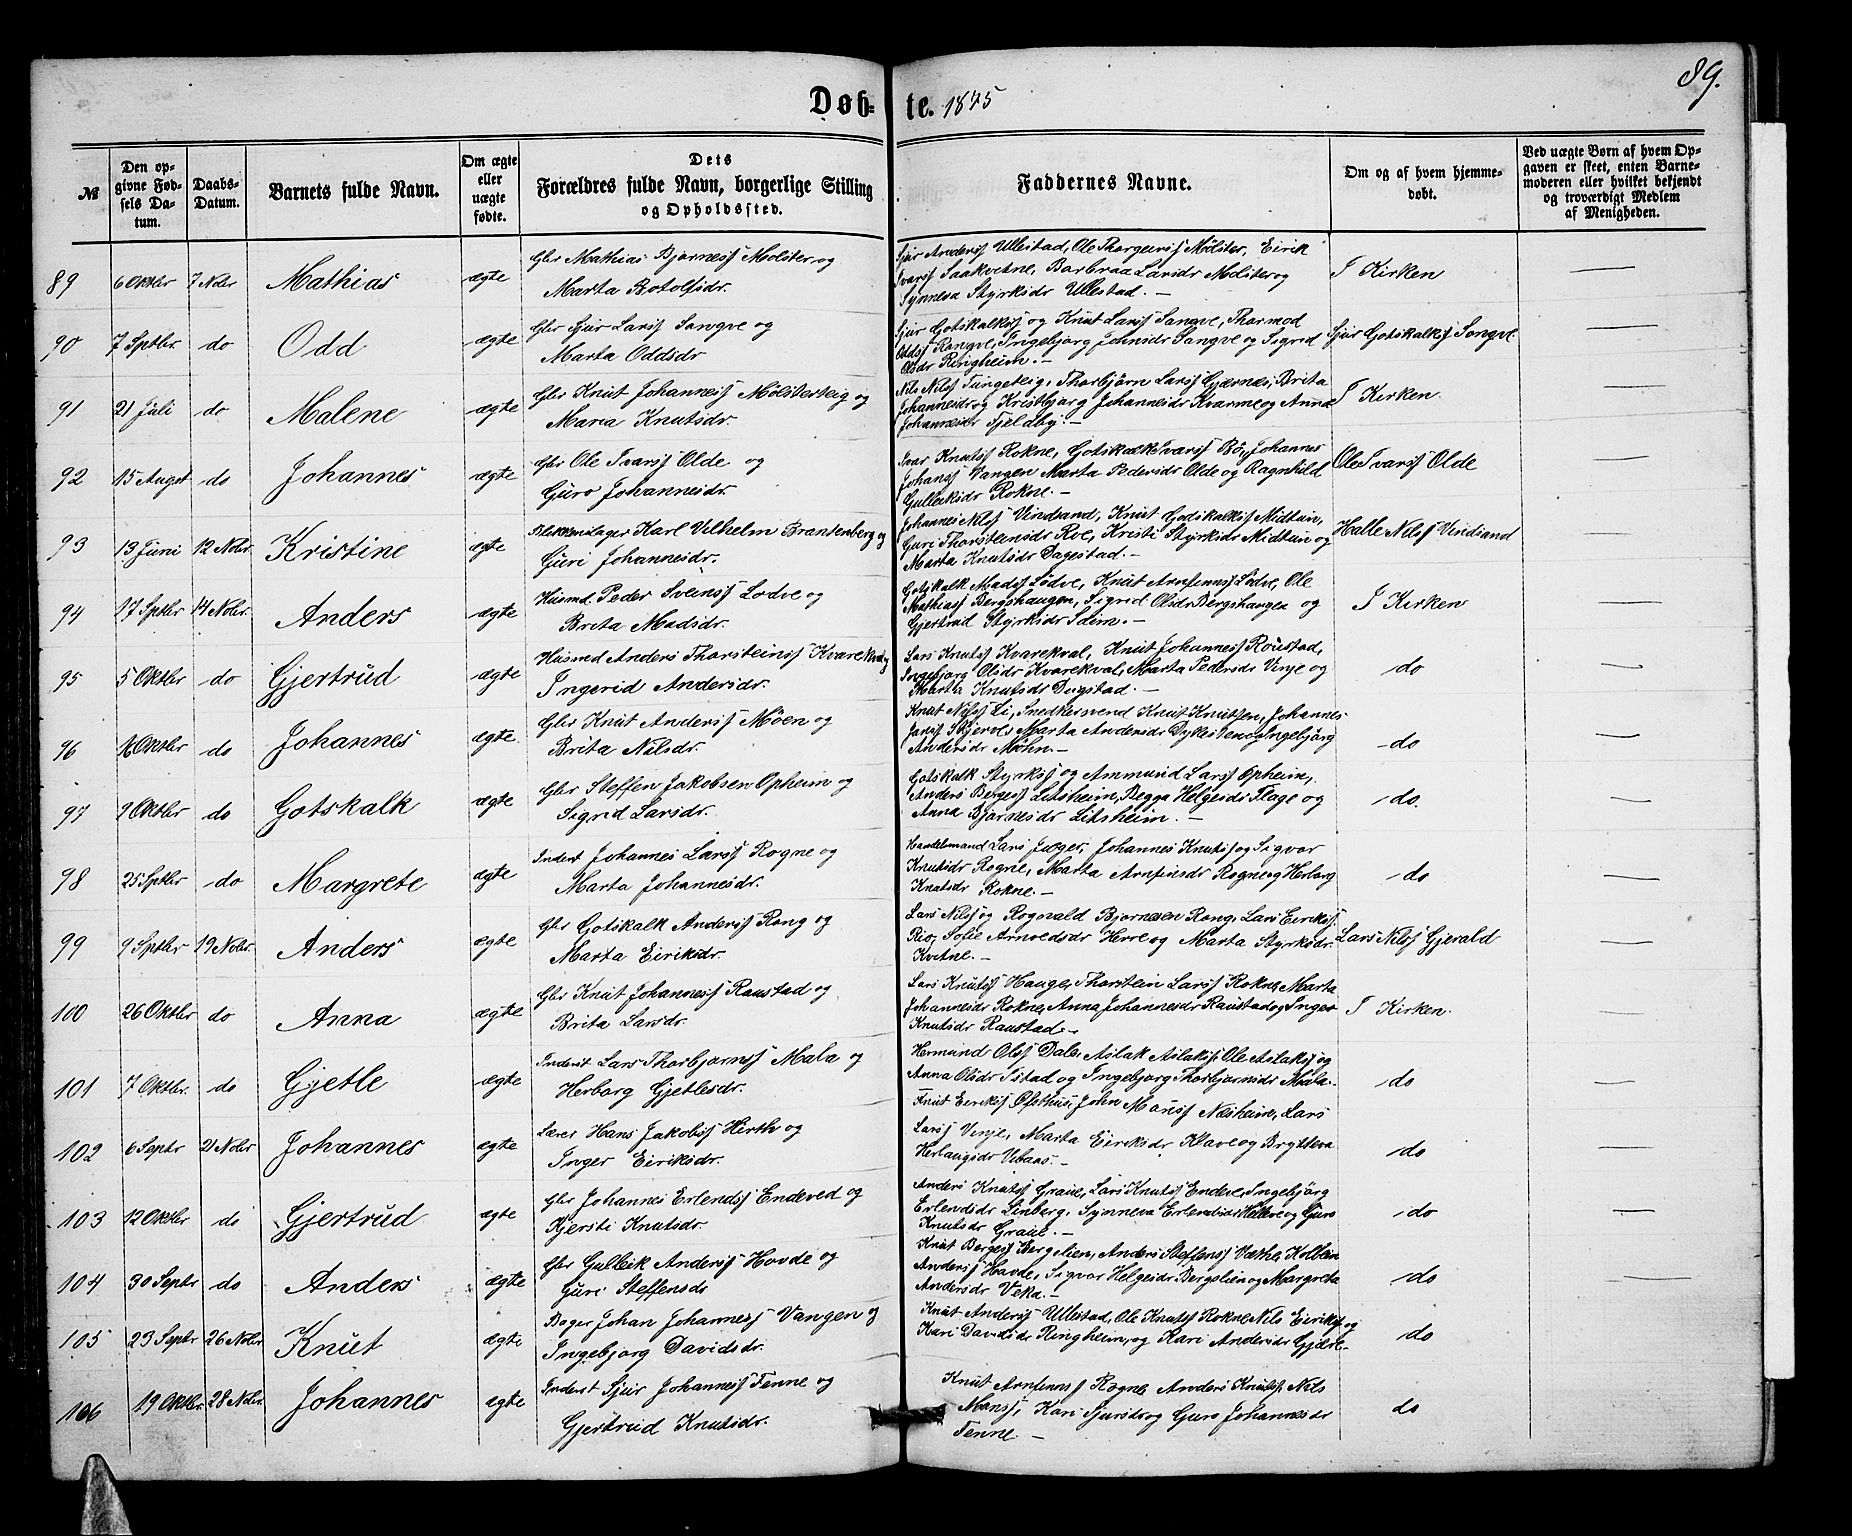 89.
Døb- te. 1875
№
Den opgivne Fødsels Datum.
Daabs-Datum.
Barnets fulde Navn.
Om ægte eller uægte fødte.
Dets Forældres fulde Navn, borgerlige Stilling og Opholdssted.
Faddernes Navne.
Om og af hvem hjemmedøbt.
Ved uægte Børn af hvem Opgaven er skeet, enten Barnemoderen eller hvilket bekjendt og troværdigt Medlem af Menigheden.
89 6 Oktbr 7 Nobr Mathias ægte Gbr Mathias Bjørness Mölster og
Marta Botolfsdr.
Sjur Anderss Ullestad, Ole Thorgeirss Mölster, Eirik
Ivarss Saakvitne, Barbraa Larsdr Mölster og
Synneva Styrksdr Ullestad. —
I Kirken —
90 7 Septbr do Odd ægte Gbr Sjur Larss Sangve og
Marta Oddsdr
Sjur Gotskalkss og Knut Larss Sangve, Thormod
Oddss Rongve, Ingebjørg Johnsdr Sangve og Sigrid
Olsdr Ringheim. —
Sjur Gotskalkss Sangve. —
91 21 Juli do Malene ægte Gbr Knut Johanness Mölsterteig og
Maria Knutsdr.
Nils Nilss Tungeteig, Thorbjörn Larss Gjernes, Brita
Johannesdr og Kristbjørg Johannesdr Kvarme og Anna
Johannesdr Fjeldby. —
I Kirken. —
92 15 Augst do Johannes ægte Gbr Ole Ivarss Olde og
Guro Johannesdr.
Ivar Knutss Rokne, Gotskalk Ivarss Bö, Johannes
Johanss Vangen Marta Pedersdr Olde og Ragnhild
Gulleiksdr Rokne. —
Ole Ivarss Olde —
93 13 Juni 12 Nobr. Kristine ægte Blikkenslager Karl Vilhelm Brantenberg og
Guri Johannesdr.
Johannes Nilss Vindsand, Knut Godskalkss Midtun,
Guri Thorsteinsdr Roe, Kristi Styrksdr Midtun og
Marta Knutsdr Dagestad. —
Halle Nilss Vindsand —
94 17 Septbr 14 Nobr. Anders ægte Husmd. Peder Sveinss Lodve og
Brita Madsdr.
Gotskalk Madss Lödve, Knut Arnfinnss Lödve, Ole
Mathiass Bergshaugen, Sigrid Olsdr Bergshaugen og
Gjertrud Styrksdr Seim. —
I Kirken —
95 5 Oktbr do Gjertrud ægte Husmd Anders Thorsteinss Kvarekval og
Ingerid Andersdr.
Lars Knutss Kvarekval, Knut Johanness Roustad,
Ingebjørg Olsdr Kvarekval, Marta Pedersdr Vinje og
Marta Knutsdr Dugstad. —
do —
96 16 Oktbr do Johannes ægte Gbr Knut Anderss Möen og
Brita Nilsdr.
Knut Nilss Li, Snedkersvend Knut Knutsen, Johannes
Andersdr Möhn. —
do —
97 9 Oktbr do Gotskalk ægte Gbr Steffen Jakobsen Opheim og
Sigrid Larsdr.
Gotskalk Styrkss og Ammund Larss Opheim,
Anders Bergess Litsheim, Begga Helgesdr Flage og
Anna Bjørnesdr Litsheim. —
do. —
98 25 Septbr do Margrete ægte Inderst Johannes Larss Rogne og
Marta Johannesdr.
Handelsmand Lars Jæger, Johannes Knutss og Sigvor
Knutsdr Rogne, Marta Arnfinsdr Rogne og Herborg
Knutsdr Rokne. —
do —
99 9 Septbr 19 Nobr. Anders ægte Gbr Gotskalk Anderss Rong og
Marta Eiriksdr.
Lars Nilss og Rognald Bjørnesen Rong, Lars Eirikss
Rio, Sofie Arnvedsdr Herre og Marta Styrksdr
Kvitne. —
Lars Nilss Gjerald —
100 26 Oktbr do Anna ægte Gbr Knut Johanness Raustad og
Brita Larsdr.
Lars Knutss Hauge, Thorstein Larss Rokne, Marta
Johannesdr Rokne, Anna Johannesdr Raustad og Inger
Knutsdr Raustad. —
I Kirken. —
101 7 Oktbr. do Gjetle ægte Inderst Lars Thorbjørnss Mala og
Herborg Gjetlesdr.
Hermund Olss Dale, Aslak Aslakss, Ole Aslakss og
Anna Olsdr Istad og Ingebjørg Thorbjørnsdr Mala.
do —
102 6 Septr 21 Nobr Johannes ægte Lærer Hans Jakobss Hirth og
Inger Eiriksdr.
Knut Eirikss Ofsthus, John Monss Næsheim, Lars
Larss Vinje, Marta Eiriksdr Klave og Brytteva
Herlaugsdr Vibaas. —
do —
103 12 Oktbr do Gjertrud ægte Gbr Johannes Erlendss Endeved og
Kjersti Knutsdr.
Anders Knutss Graue, Lars Knutss Endeve, Ingebjørg
Erlendsdr Linberg, Synneva Erlendsdr Helleve og Guro
Knutsdr Graue. —
do —
104 30 Septr do Anders ægte Gbr Gulleik Anderss Hovde og
Guri Steffensdr
Knut Bergess Bergslien, Anders Steffenss Væthe, Kolbein
Anderss Hovde, Sigvor Helgesdr Bergslien og Margreta
Andersdr Veka. —
do —
105 23 Septr 26 Nobr. Knut ægte Bager Johan Johanness Vangen og
Ingebjørg Davidsdr.
Knut Anderss Ullestad, Ole Knutss Rokne, Nils Eirikss og
Kari Davidsdr Ringheim, og Kari Andersdr Gjære.
do
106 19 Oktbr. 28 Nobr. Johannes ægte Inderst Sjur Johanness Tenne og
Gjertrud Knutsdr.
Knut Arnfinnss Rogne, Anders Knutss, Nils
Monss, Kari Sjursdr og Guro Johannesdr
Tenne. —
do